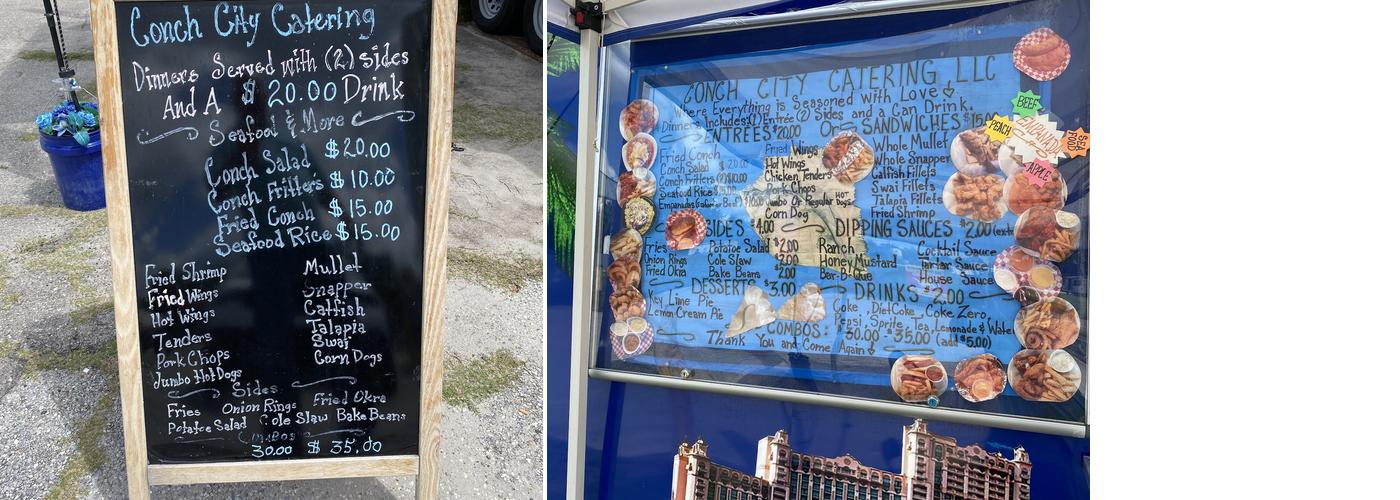 Conch City Catering
Dinners Served with (2) sides
And A $ 20.00 Drink
Seafood & More
Conch Salad $20.00
Conch Fritters $10.00
Fried Conch $15.00
Seafood Rice $15.00
Fried Shrimp
Fried Wings
Hot Wings
Tenders
Pork Chops
Jumbo Hot Dogs
Mullet
Snapper
Catfish
Talapia
Swai
Corn Dogs
Sides
Fries Onion Rings Fried Okra
Potatoe Salad Cole Slaw Bake Beans
30.00 $ 35.00
CONCH CITY CATERING, LLC
Where Everything is Seasoned with Love
Dinners Includes (1) Entrée (2) Sides and a Can Drink.
ENTREES $20.00 Or SANDWICHES
Fried Conch
Conch Salad
Conch Fritters
Seafood Rice
Fried Wings
Hot Wings
Chicken Tenders
Pork Chops
Jumbo Or Regular Hot Dogs
Corn Dog
Whole Mullet
Whole Snapper
Catfish Fillets
Swai Fillets
Talapia Fillets
Fried Shrimp
BEEF
PEACH
SEA FOOD
APPLE
SIDES $4.00
Fries
Onion Rings
Fried Okra
Potatoe Salad $2.00
Cole Slaw $2.00
Bake Beans $2.00
DIPPING SAUCES $2.00
Ranch
Honey Mustard
Bar-B-Que
Cocktail Sauce
Tartar Sauce
House Sauce
DESSERTS $3.00
Key Lime Pie
Lemon Cream Pie
DRINKS $2.00
Coke, Diet Coke, Coke Zero,
Pepsi, Sprite, Tea, Lemonade & Water
COMBOS: $30.00 - $35.00 (add $5.00)
Thank You and Come Again